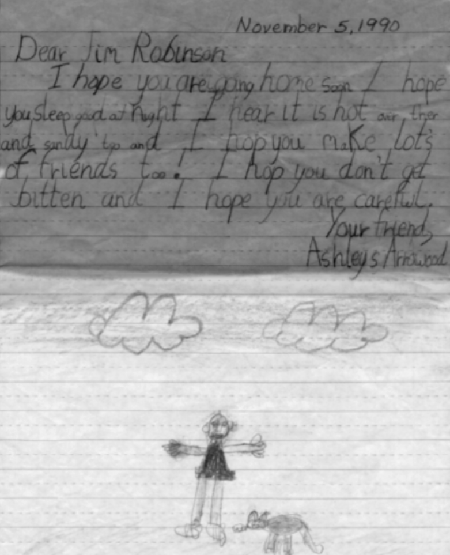 November 5, 1990
Dear Jim Robinson
I hope you are going home soon I hope
you sleep good at night I hear it is hot over ther
and sandy too and I hop you make lots
of friends too! I hop you don't get
bitten and I hope you are careful.
Your friend,
Ashley s Arrowood